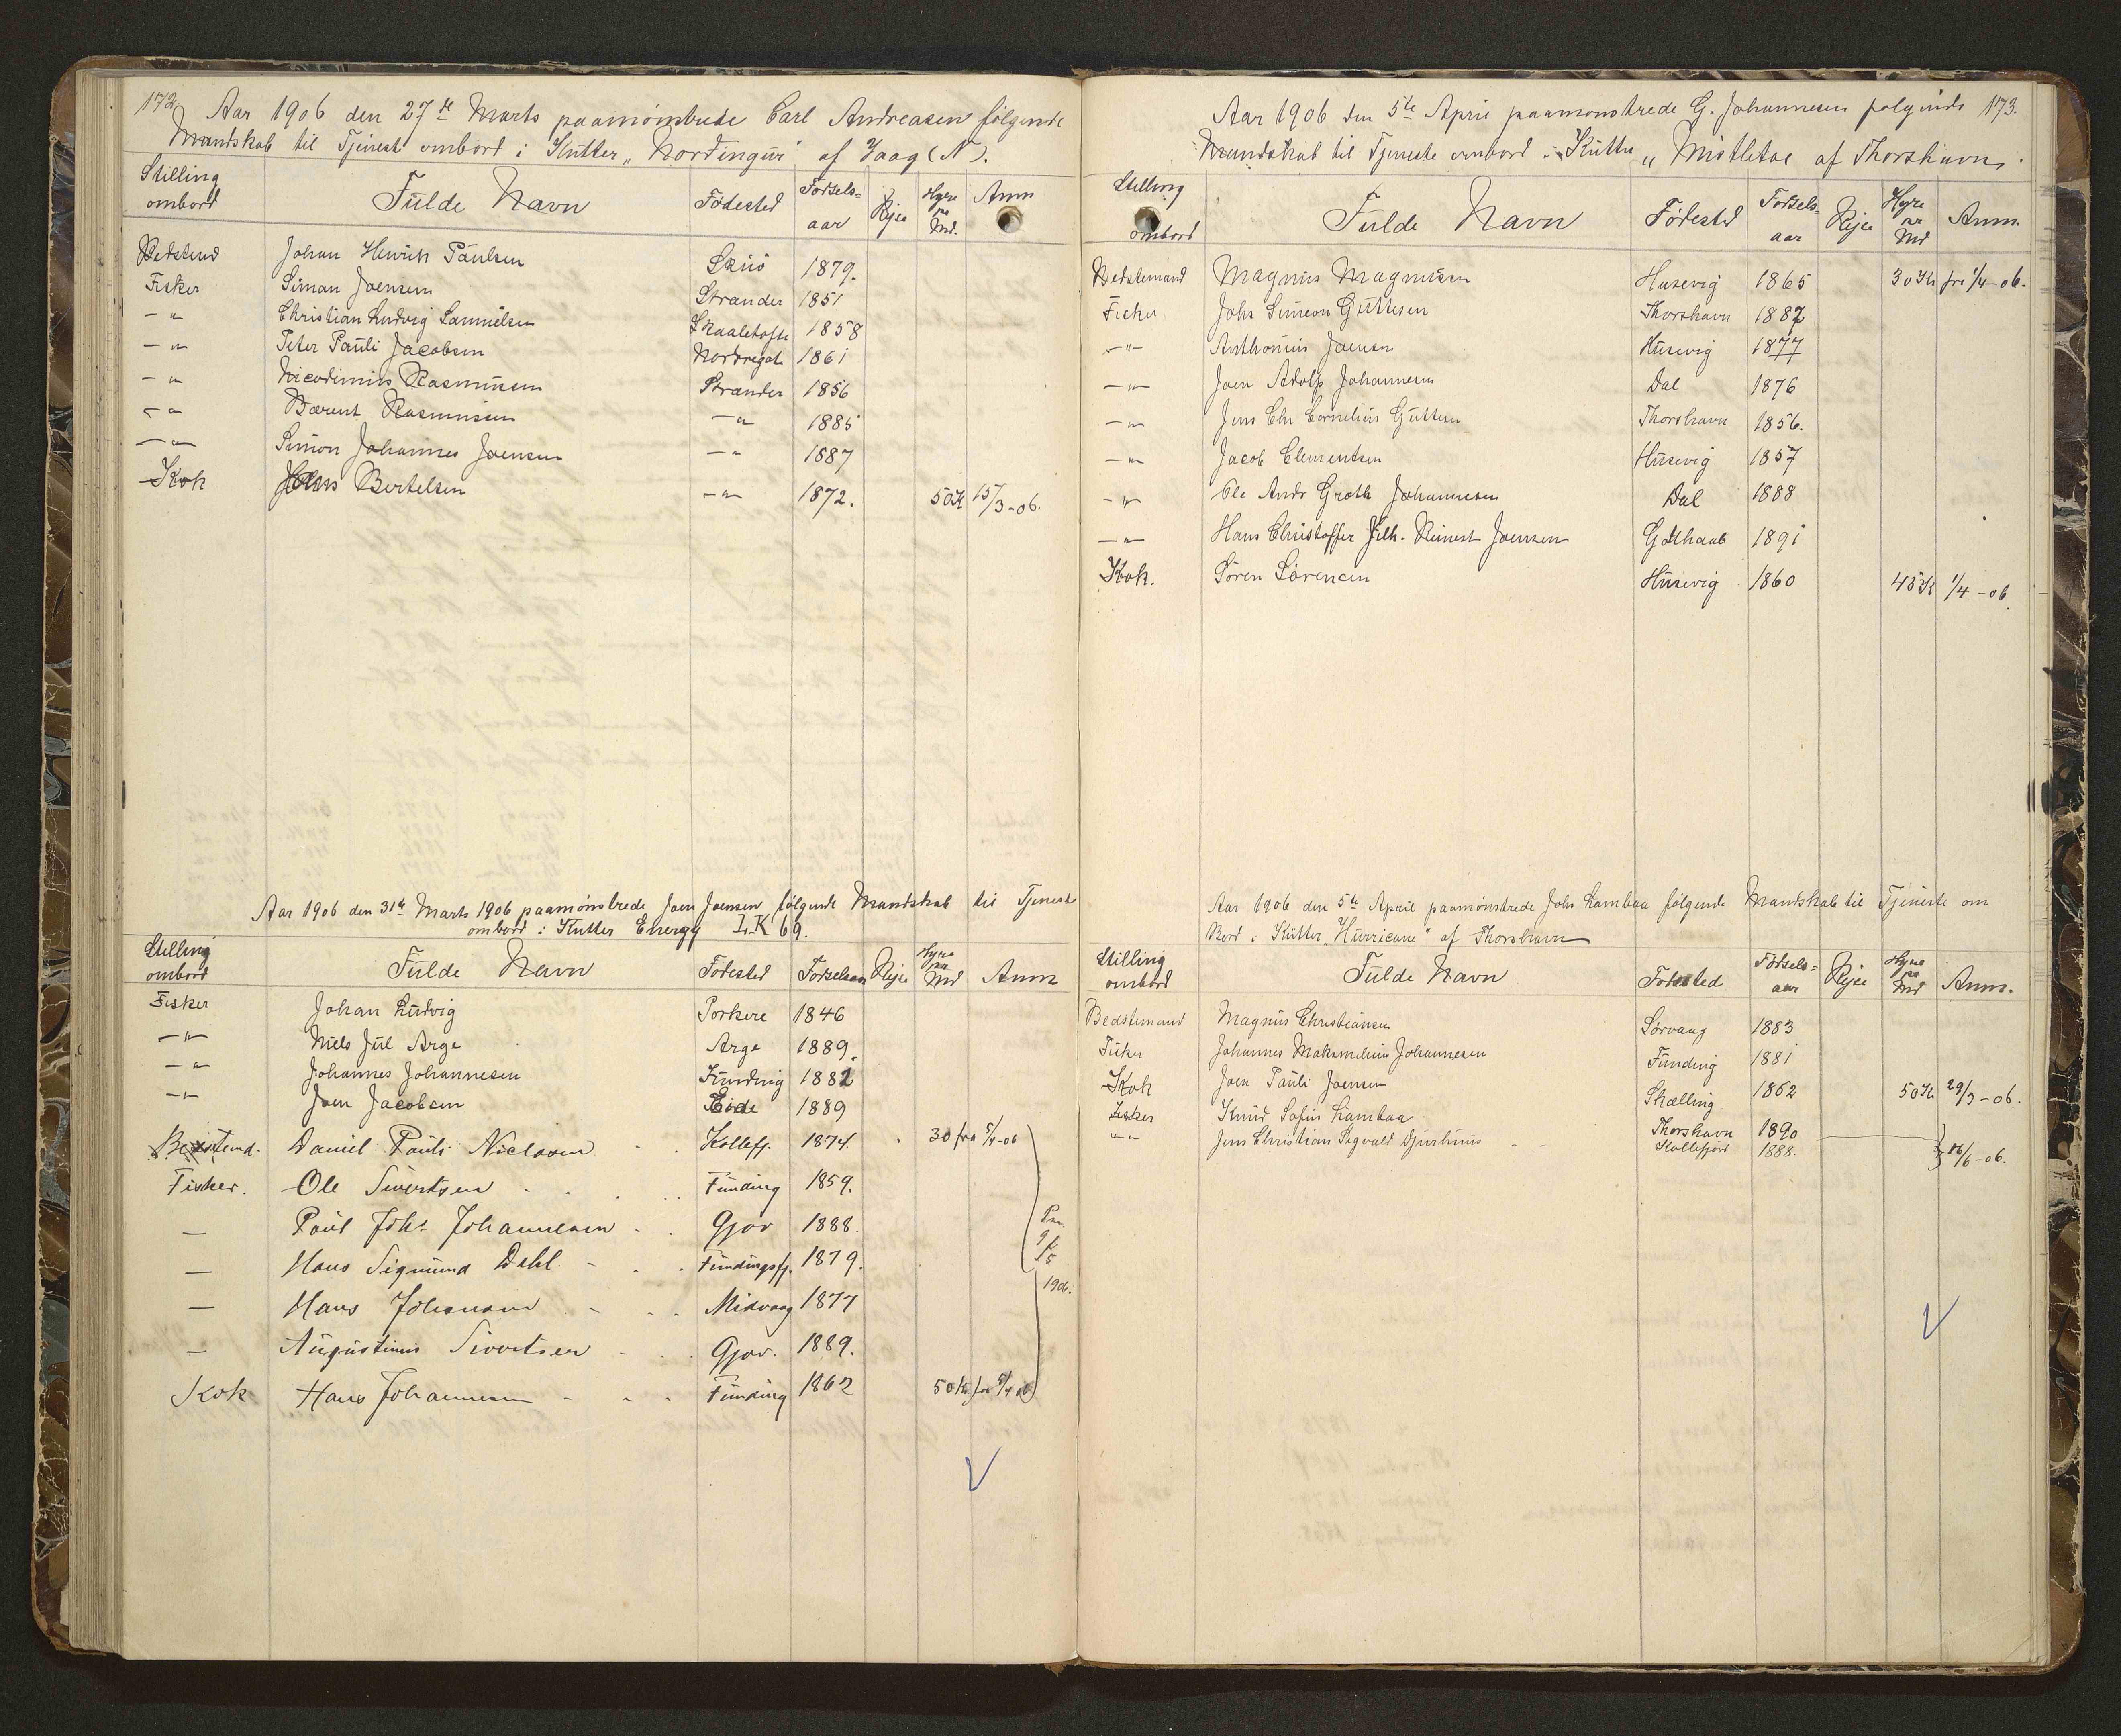 172
Aar 1906 den 27de Marts paamönstrede Carl Andreasen fölgende
Mandskab til Tjeneste ombord i Kutter „Nordingur" af Vaag (N).
Stilling ombord Fulde Navn Födested Fødsels-aar Rejse Hyre pr Md. Anm
Bedstmd Johan Henrik Paulsen 1879.
Fisker Simon Joensen Strander 1851
— " Christian Ludvig Samuelsen Skaaletofte 1858
— " Peter Pauli Jacobsen Nordregöte 1861
— " Nicodimus Rasmussen Strander 1856
— " Bærent Rasmussen — " 1885
— " Simon Johannes Joensen — " 1887
Kok Bertelsen — " 1872. 50 Kr 15/3-06.
Aar 1906 den 31te Marts 1906 paamönstrede Joen Joensen fölgende Mandskab til Tjeneste
ombord i Kutter Energy L.K 69.
Stilling ombord Fulde Navn Födested Födselsaar Rejse Hyre pr Md Anm
Fisker Johan Ludvig Porkere 1846
— " Niels Jul Arge Arge 1889
— " Johannes Johannesen Funding 1882
— " Joen Jacobsen Eide 1889
Bedstemd. Daniel Pauli Niclasen Kollefj. 1874. 30 fra 5/4-06
Fisker. Ole Sivertsen Funding 1859.
— Poul Johs Johannesen Gjov 1888.
— Hans Sigmund Dahl Fundingsfj. 1879.
— Hans Johansen Midvaag 1877
— Augustinus Sivertsen Gjov. 1889.
Kok Hans Johannesen Funding 1862 50 Kr. fra 5/4 06
173.
Aar 1906 den 5te April paamonstrede G. Johannesen folgende
Mandskab til Tjeneste ombord i Kutter „Mistletoe af Thorshavn.
Stilling ombord Fulde Navn Födested Födsels-aar Rejse Hyre pr Md Anm.
Bedstemand Magnus Magnusen Husevig 1865 30 Kr fra 1/4-06.
Fisker Johs Simeon Guttesen Thorshavn 1887
— " — Anthonius Joensen Husevig 1877
— " — Joen Adolf Johannesen Dal 1876
— " Jens Chr Cornelius Guttesen Thorshavn 1856.
— " Jacob Clementsen Husevig 1857
— " Ole Andr Groth Johannesen Dal 1888
— " Hans Christoffer Vilh. Reinert Joensen Gothaab 1891
Kok. Sören Sörensen Husevig 1860 45 Kr 1/4-06
Aar 1906 den 5te April paamönstrede Johs Lambaa fölgende Mandskab til Tjeneste om
Bord i Kutter „Hurricane" af Thorshavn
Stilling ombord Fulde Navn Födested Födsels-aar Rejse Hyre pr Md Anm.
Bedstemand Magnus Christiansen Sörvaag 1883
Fisker Johannes Maksimilius Johannesen Funding 1881
Kok Joen Pauli Joensen Skælling 1862 50 Kr 29/3-06.
Fisker Knud Sofus Lambaa Thorshavn 1890
" " Jens Christian Sigvald Djurhuus Kollefjord 1888. 16/6-06.